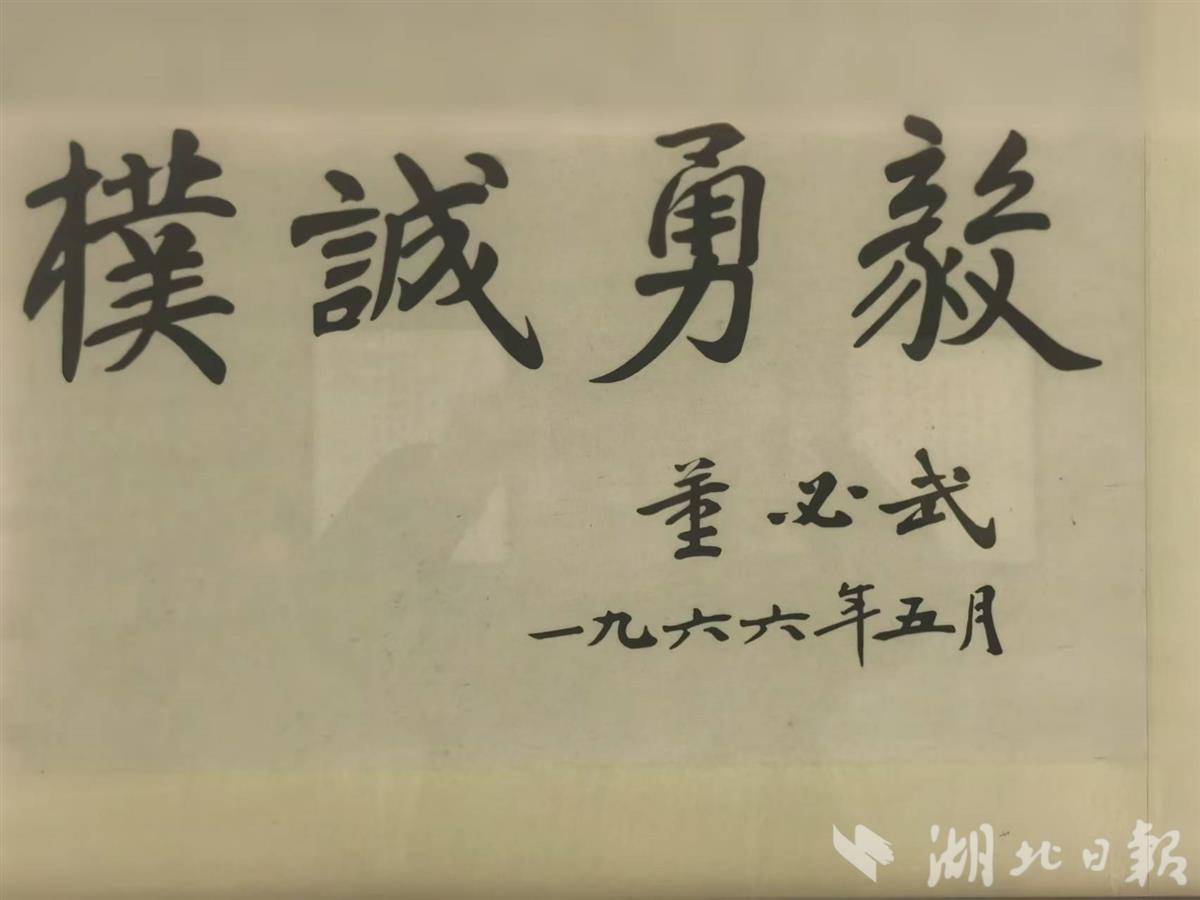 樸誠勇毅
董必武
一九六六年五月
湖北日報